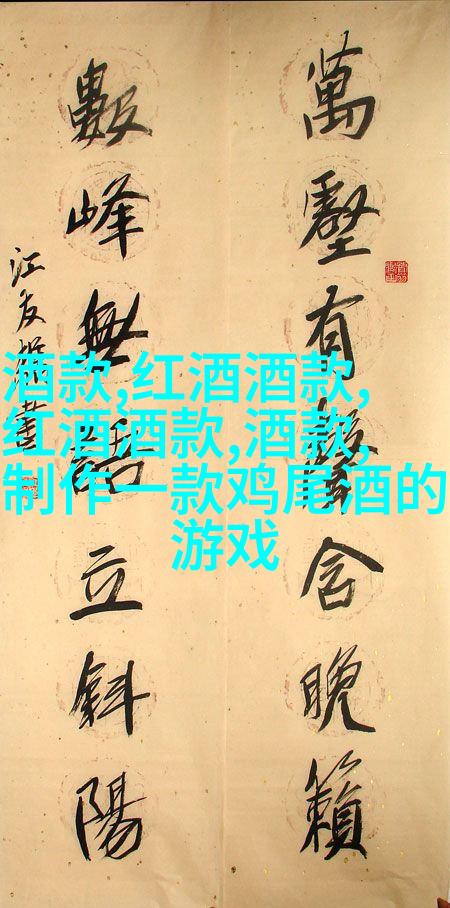 萬壑有聲含晚籟
數峰無語立斜陽
江友樵書
酒款,红酒酒款,
红酒酒款,酒款,
制作一款鸡尾酒的
游戏